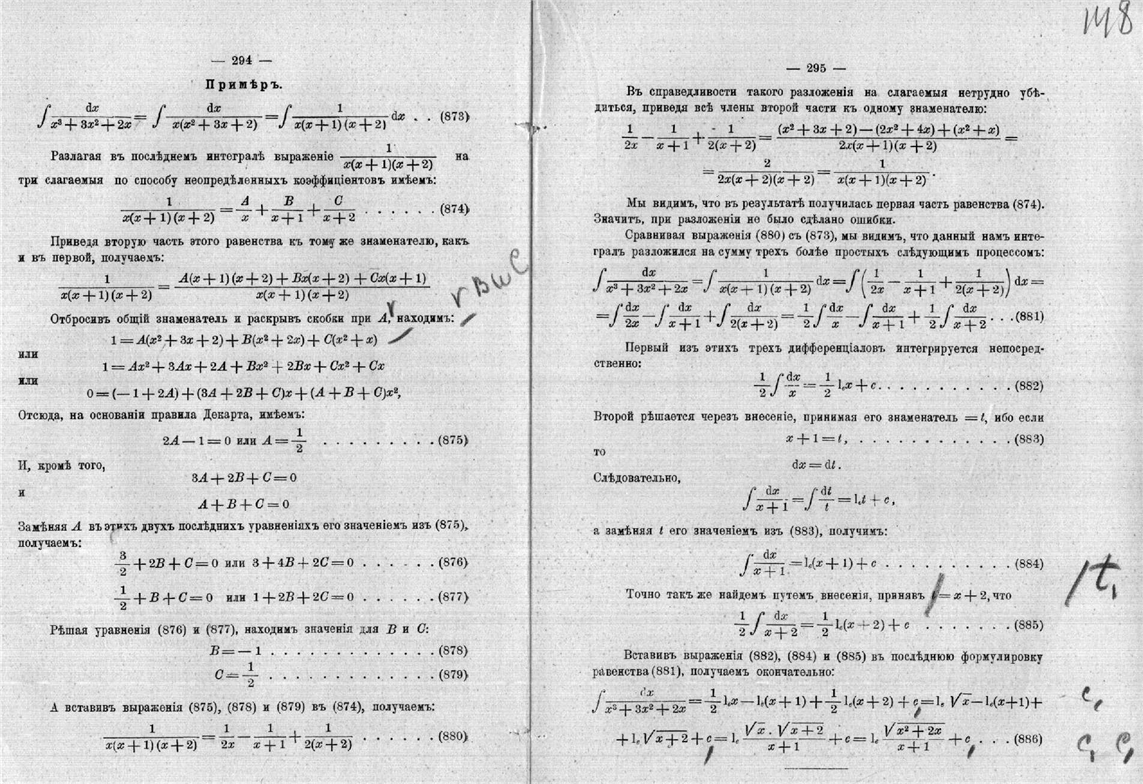 148
— 294 —
Примѣръ.
∫ dx / (x³ + 3x² + 2x) = ∫ dx / (x(x² + 3x + 2)) = ∫ 1 / (x(x + 1)(x + 2)) dx . . (873)
Разлагая въ послѣднемъ интегралѣ выраженіе 1 / (x(x + 1)(x + 2)) на
три слагаемыя по способу неопредѣленныхъ коэффиціентовъ имѣемъ:
1 / (x(x + 1)(x + 2)) = A/x + B/(x + 1) + C/(x + 2) . . . . . . (874)
Приведя вторую часть этого равенства къ тому же знаменателю, какъ
и въ первой, получаемъ:
1 / (x(x + 1)(x + 2)) = (A(x + 1)(x + 2) + Bx(x + 2) + Cx(x + 1)) / (x(x + 1)(x + 2))
Отбросивъ общій знаменатель и раскрывъ скобки при A, находимъ:
1 = A(x² + 3x + 2) + B(x² + 2x) + C(x² + x)
или
1 = Ax² + 3Ax + 2A + Bx² + 2Bx + Cx² + Cx
или
0 = (— 1 + 2A) + (3A + 2B + C)x + (A + B + C)x²,
Отсюда, на основаніи правила Декарта, имѣемъ:
2A — 1 = 0 или A = 1/2 . . . . . . . . . . (875)
И, кромѣ того,
3A + 2B + C = 0
и
A + B + C = 0
Замѣняя A въ этихъ двухъ послѣднихъ уравненіяхъ его значеніемъ изъ (875),
получаемъ:
3/2 + 2B + C = 0 или 3 + 4B + 2C = 0 . . . . . . (876)
1/2 + B + C = 0 или 1 + 2B + 2C = 0 . . . . . . (877)
Рѣшая уравненія (876) и (877), находимъ значенія для B и C:
B = — 1 . . . . . . . . . . . . . (878)
C = 1/2 . . . . . . . . . . . . . (879)
А вставивъ выраженія (875), (878) и (879) въ (874), получаемъ:
1 / (x(x + 1)(x + 2)) = 1/(2x) — 1/(x + 1) + 1/(2(x + 2)) . . . . . . (880)
— 295 —
Въ справедливости такого разложенія на слагаемыя нетрудно убѣ-
диться, приведя всѣ члены второй части къ одному знаменателю:
1/(2x) — 1/(x + 1) + 1/(2(x + 2)) = ((x² + 3x + 2) — (2x² + 4x) + (x² + x)) / (2x(x + 1)(x + 2)) =
= 2 / (2x(x + 2)(x + 2)) = 1 / (x(x + 1)(x + 2)).
Мы видимъ, что въ результатѣ получилась первая часть равенства (874).
Значитъ, при разложеніи не было сдѣлано ошибки.
Сравнивая выраженія (880) съ (873), мы видимъ, что данный намъ инте-
гралъ разложился на сумму трехъ болѣе простыхъ слѣдующимъ процессомъ:
∫ dx / (x³ + 3x² + 2x) = ∫ 1 / (x(x + 1)(x + 2)) dx = ∫ (1/(2x) — 1/(x + 1) + 1/(2(x + 2))) dx =
= ∫ dx/(2x) — ∫ dx/(x + 1) + ∫ dx/(2(x + 2)) = 1/2 ∫ dx/x — ∫ dx/(x + 1) + 1/2 ∫ dx/(x + 2) . . . (881)
Первый изъ этихъ трехъ дифференціаловъ интегрируется непосред-
ственно:
1/2 ∫ dx/x = 1/2 lₑx + c . . . . . . . . . . . (882)
Второй рѣшается черезъ внесеніе, принимая его знаменатель = t, ибо если
x + 1 = t, . . . . . . . . . . . . (883)
то
dx = dt.
Слѣдовательно,
∫ dx/(x + 1) = ∫ dt/t = lₑt + c,
а замѣняя t его значеніемъ изъ (883), получимъ:
∫ dx/(x + 1) = lₑ(x + 1) + c . . . . . . . . . (884)
Точно такъ же найдемъ путемъ внесенія, принявъ = x + 2, что
t,
1/2 ∫ dx/(x + 2) = 1/2 lₑ(x + 2) + c . . . . . . . (885)
Вставивъ выраженія (882), (884) и (885) въ послѣднюю формулировку
равенства (881), получаемъ окончательно:
∫ dx / (x³ + 3x² + 2x) = 1/2 lₑx — lₑ(x + 1) + 1/2 lₑ(x + 2) + c = lₑ √x — lₑ(x+1) +
c,
+ lₑ √(x + 2) + c = lₑ (√x . √(x + 2)) / (x + 1) + c = lₑ √(x² + 2x) / (x + 1) + c . . . (886)
c, c,